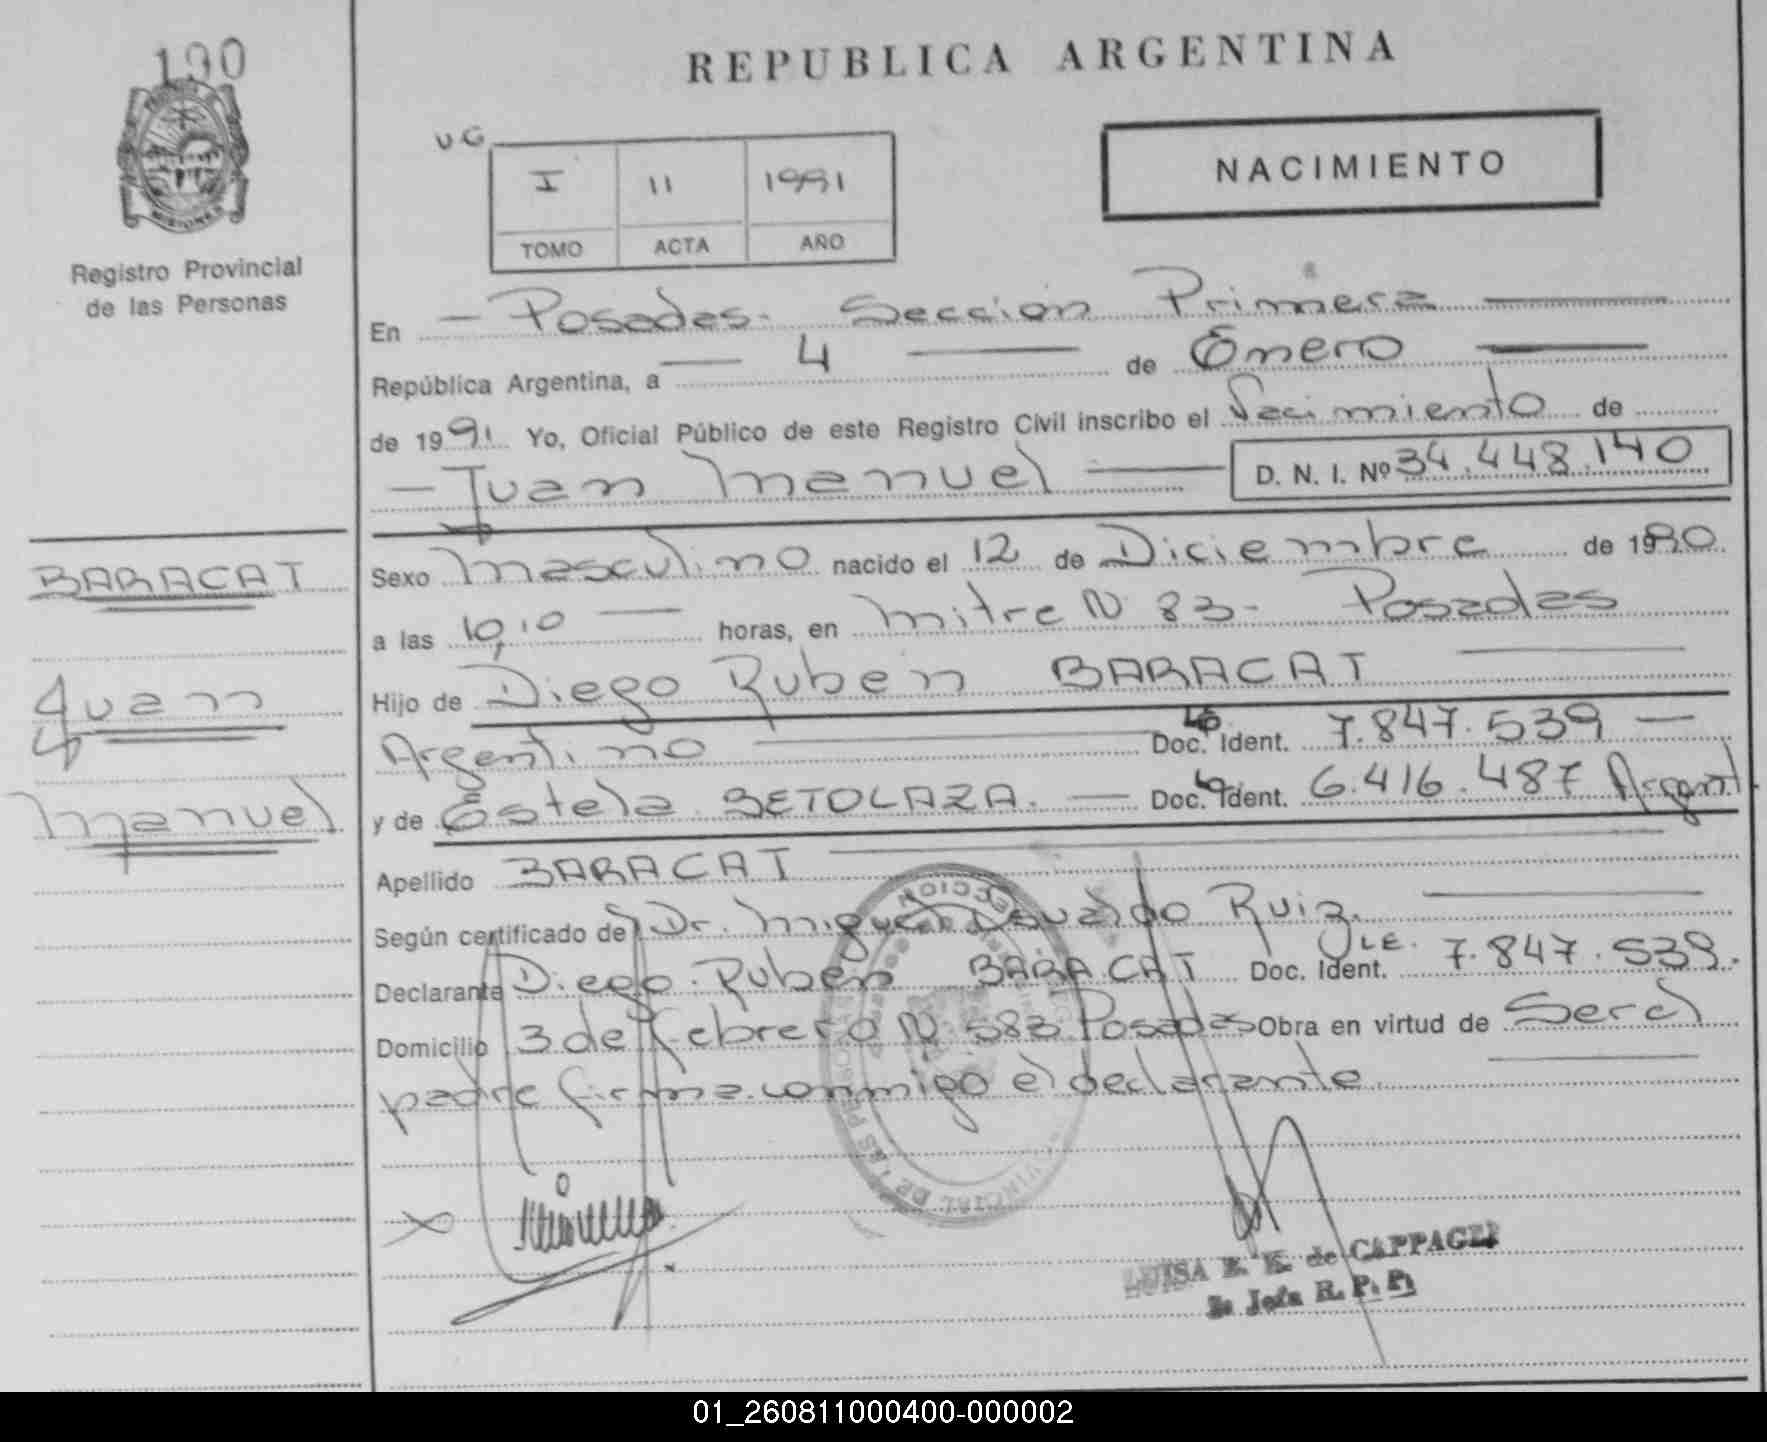 190
MISIONES
Registro Provincial
de las Personas
REPUBLICA ARGENTINA
NACIMIENTO
UG
I 11 1991
TOMO ACTA AÑO
En — Posadas. Sección Primera —
República Argentina, a — 4 — de Enero —
de 1991. Yo, Oficial Público de este Registro Civil inscribo el Nacimiento de
— Juan Manuel — D. N. I. Nº 34.448.140
Sexo Masculino nacido el 12 de Diciembre de 1990.
a las 10,10 — horas, en Mitre N 83- Posadas
Hijo de Diego Ruben BARACAT —
Argentino — Doc. Ident. 7.847.539 —
y de Estela BETOLAZA. — Doc. Ident. 6.416.487 Argent.
Apellido BARACAT —
Según certificado de Dr. Miguel Osvaldo Ruiz. —
Declarante Diego Ruben BARACAT Doc. Ident. LE. 7.847.539.
Domicilio 3 de febrero N 583 Posadas Obra en virtud de Ser el
padre firma conmigo el declarante —
BARACAT
Juan
Manuel
LUISA E. K. de CAPPAGLI
Jefa R. P. P.
01_260811000400-000002